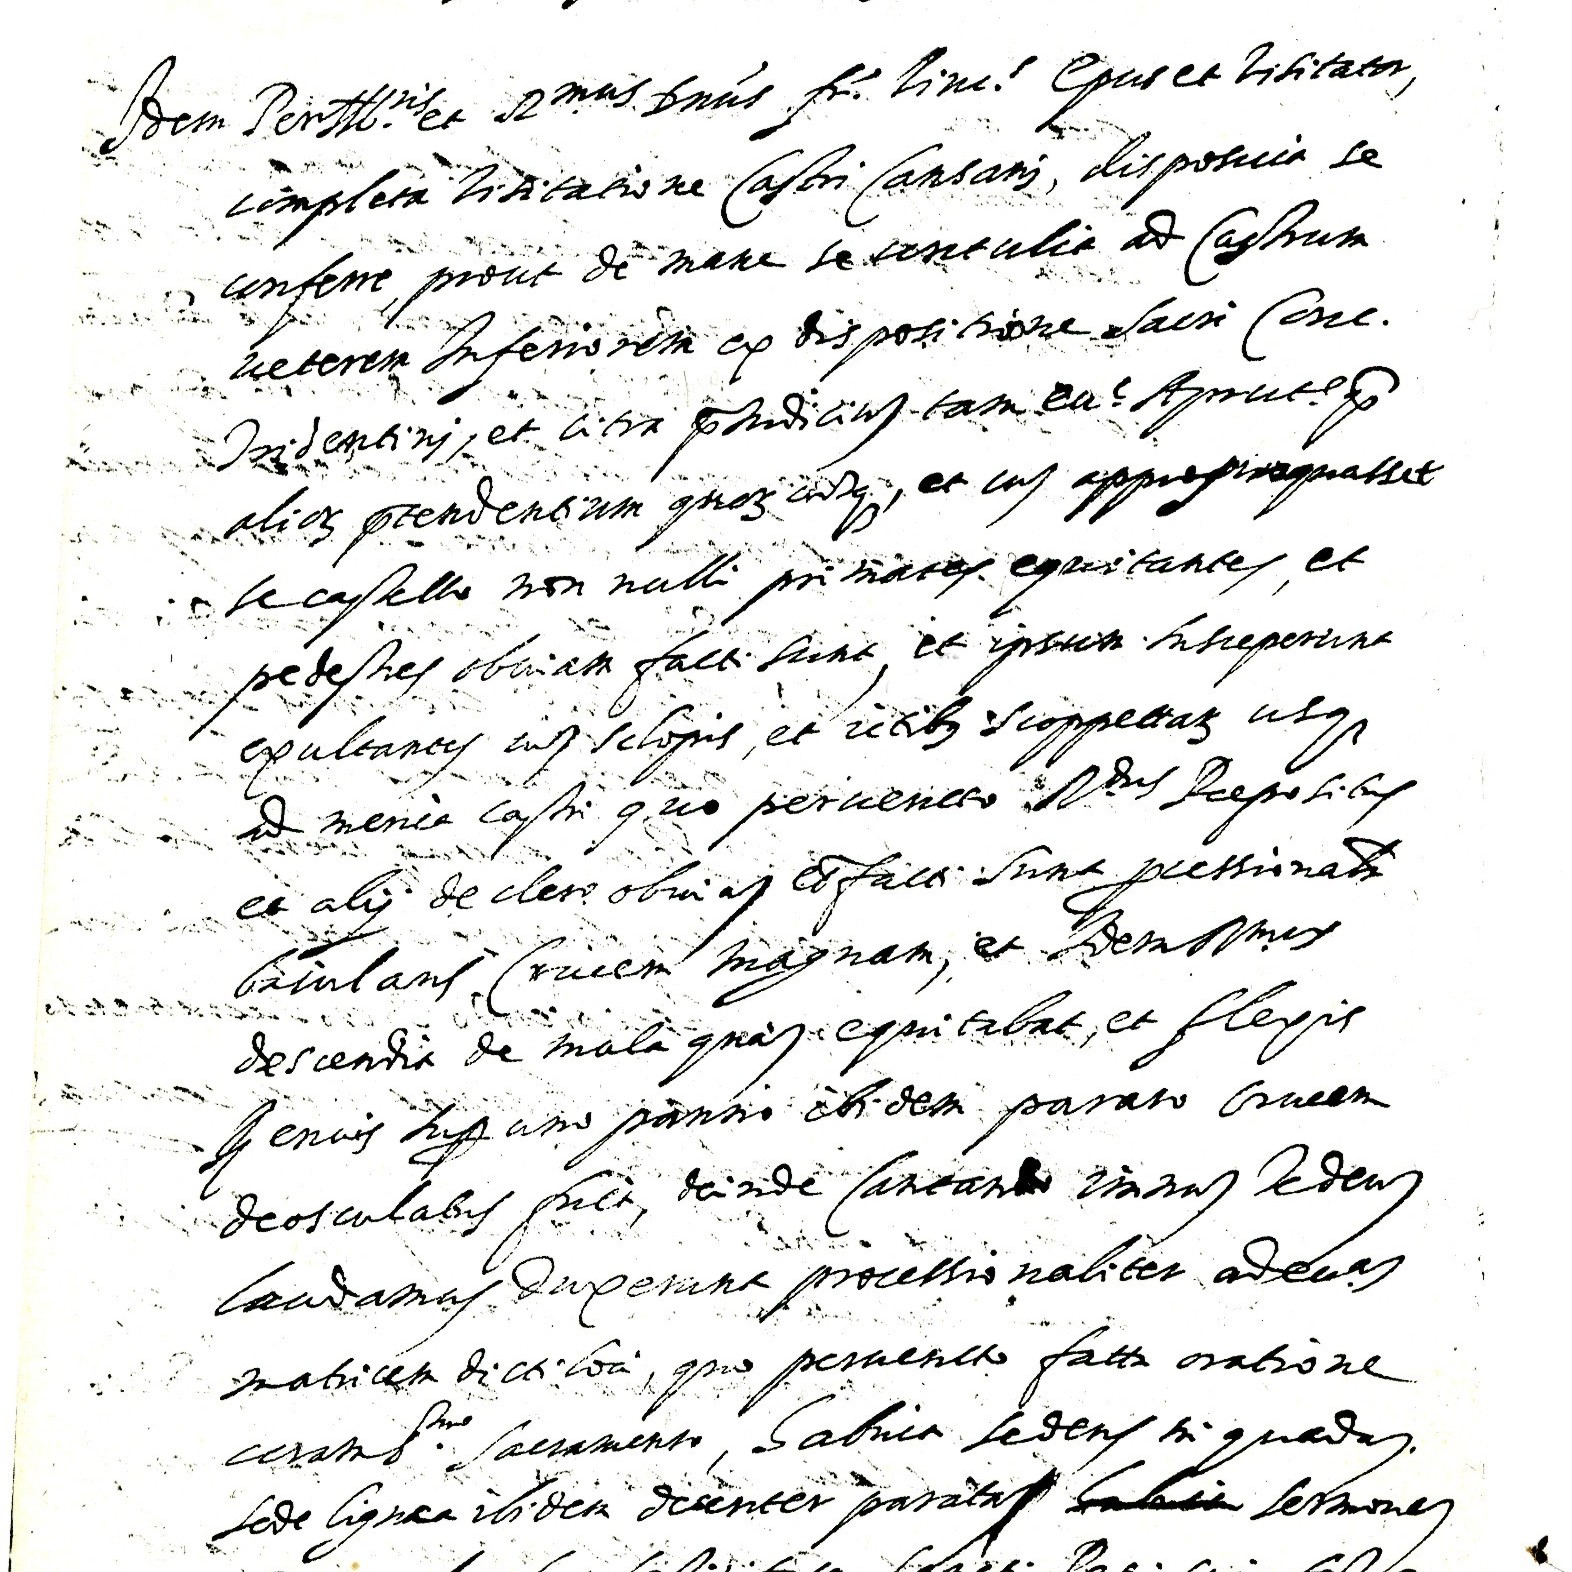 Idem PerIll.ris et R.mus Dnūs fr. Vinc.s Epus et Visitator,
completa Visitatione Castri Cansani, disposuit se
conferre, prout de mane se contulit ad Castrum
veterem Inferiorem ex dispositione Sacri Conc.
Tridentini, et citra p̄iudiciuȝ tam
alioȝ p̄tendentium quoȝcūqȝ, et cuȝ appropinquasset
se castello non nulli primates equitantes, et
pedestres obviam facti sunt, et ipsum susceperunt
exultantes cuȝ sclopis, et ictibȝ scoppettaȝ usqȝ
ad menia castri quo pervento R.dus Prepositus
et alij de clero obviaȝ eī facti sunt pcessionalr̄
baiulans Crucem magnam, et Idem R.mus
descendit de mula quaȝ equitabat, et flexis
genuis sup uno panno ibidem parato crucem
deosculatus fuit, deinde Cantando imnuȝ Te deuȝ
laudamus duxerunt processionaliter ad ecc.aȝ
matricem dicti loci, quo pervento facta oratione
coram S.smo Sacramento, habuit sedens in quadaȝ
sede lignea ibidem decenter parata sermoneȝ